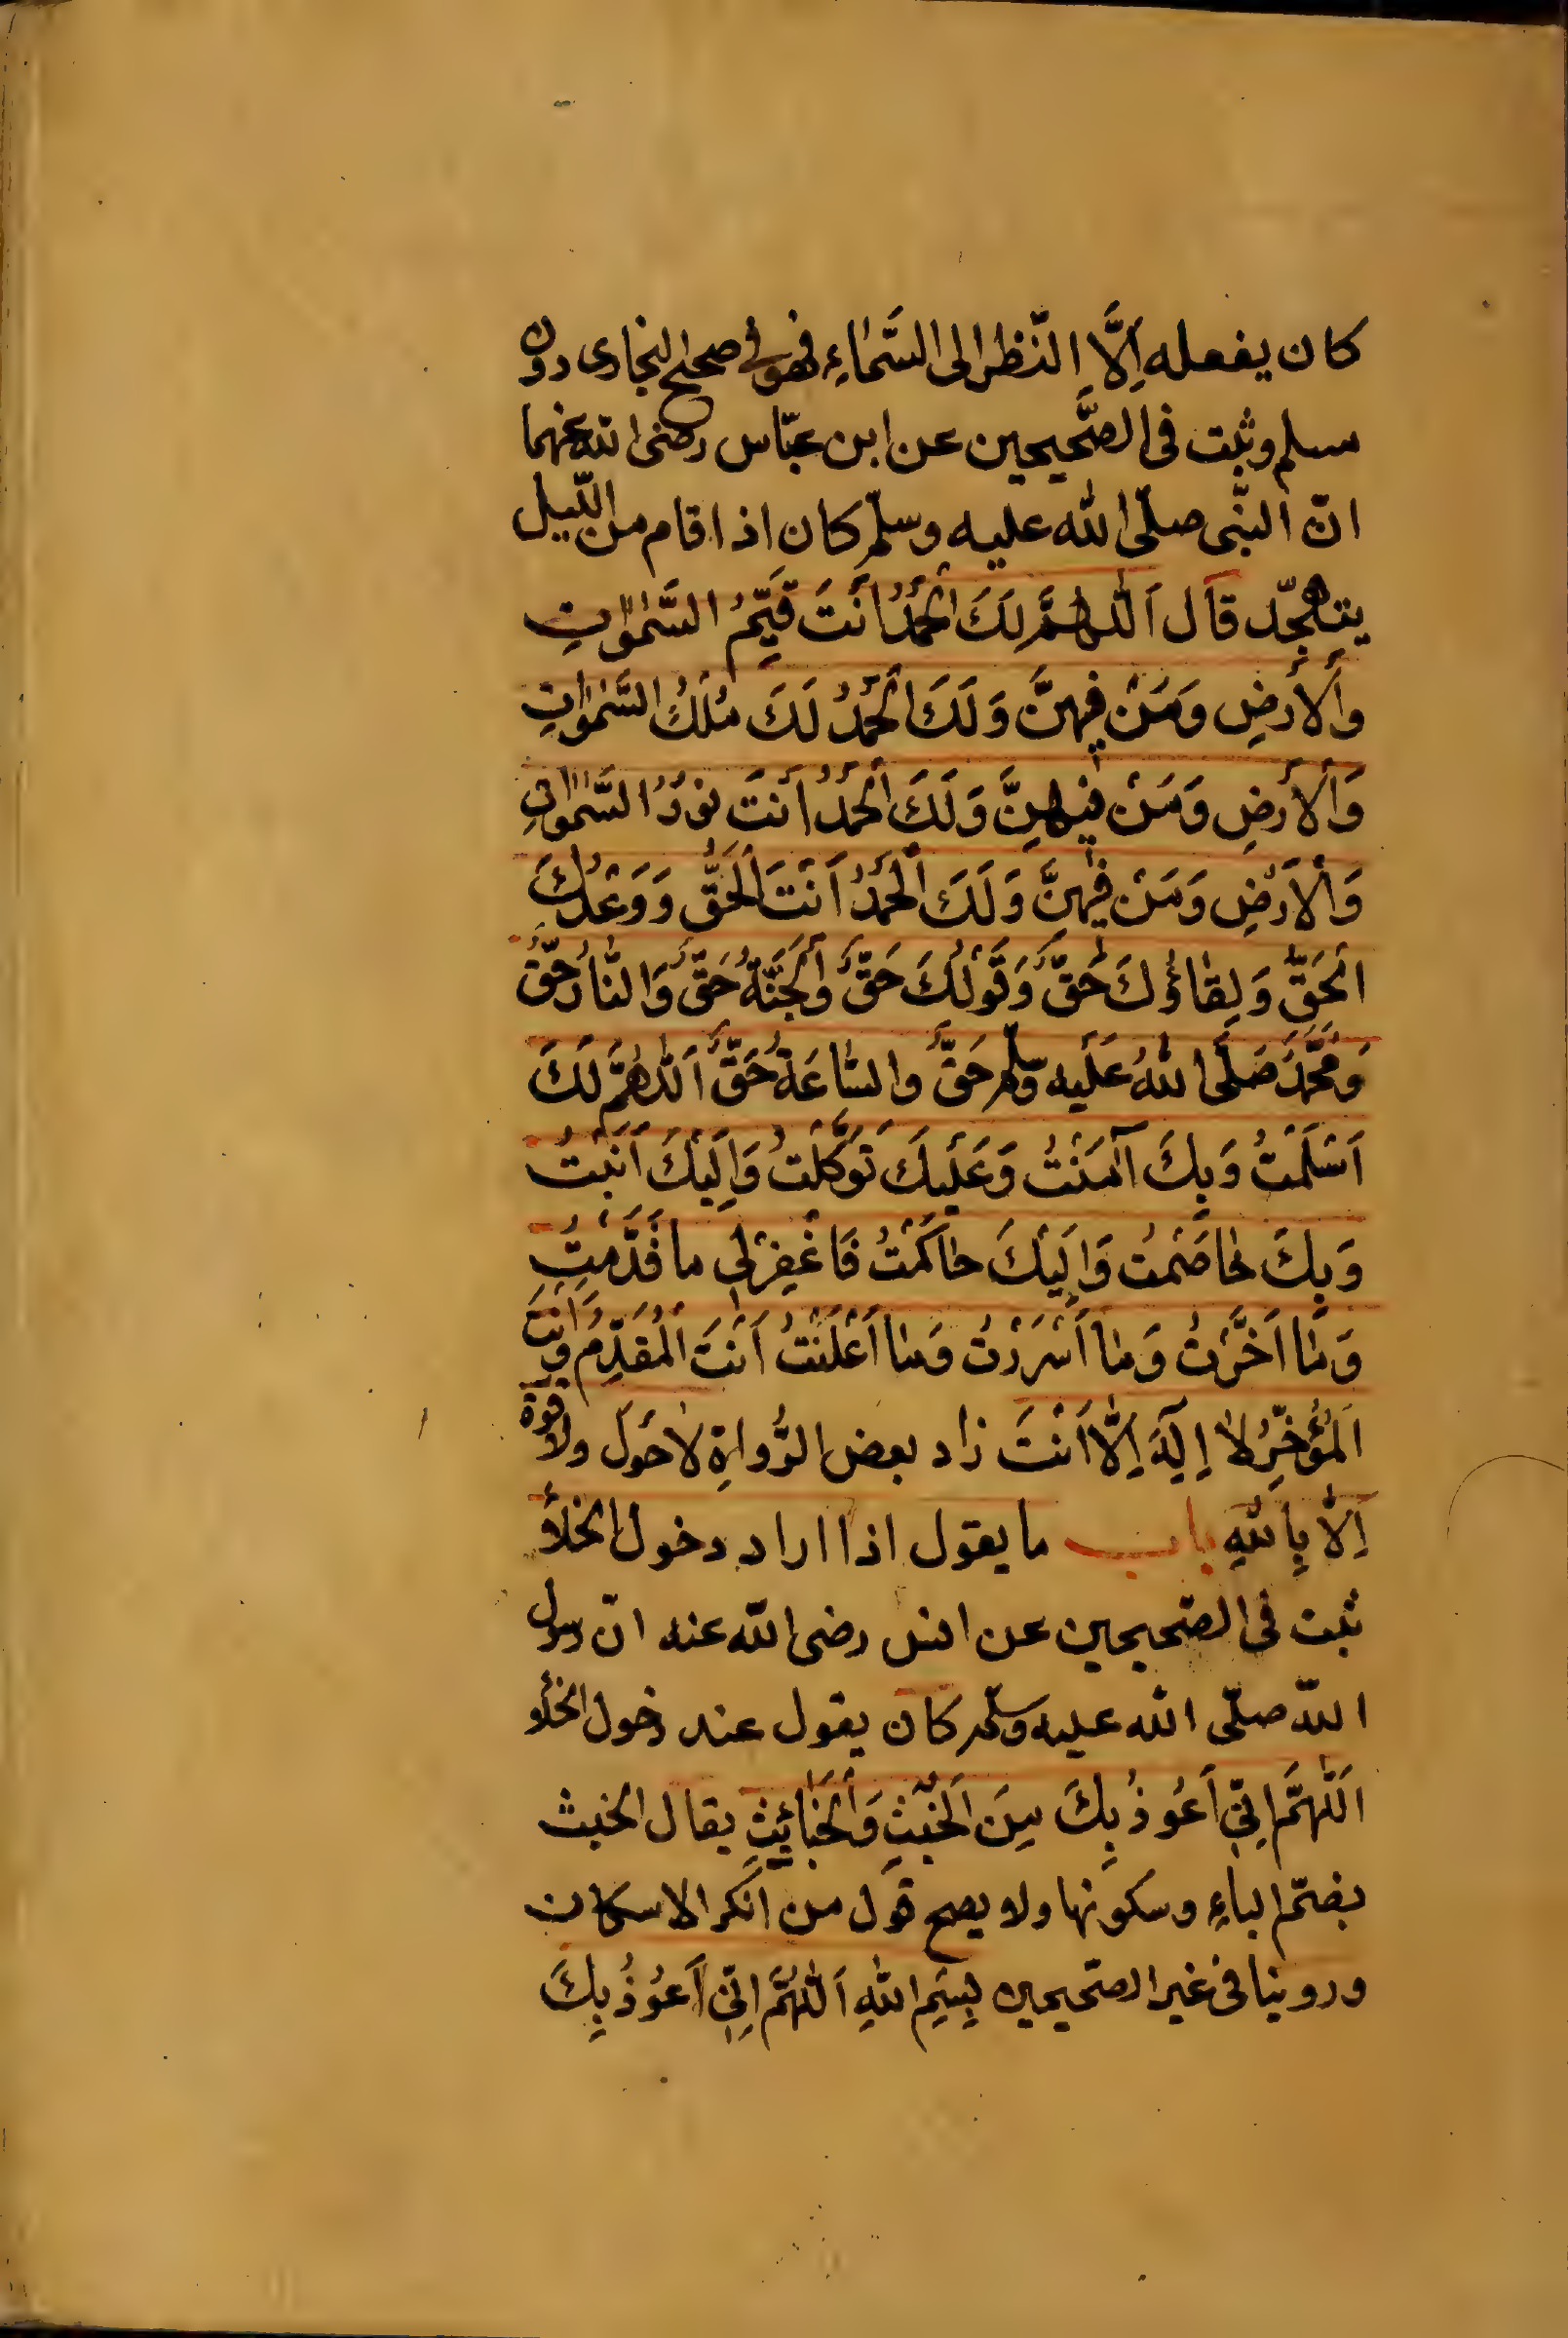 كان يفعله اِلَّا النّظر الى السَّمَاءِ فهو فى صحيح البخارى دون
مسلم وثبت فى الصَّحيحين عن ابن عبّاس رضى الله عنهما
انّ النّبى صلّى الله عليه وسلّم كان اذا قام من اللّيل
يتهجّد قال اَللّٰهُمَّ لَكَ الْحَمْدُ اَنْتَ قَيِّمُ السَّمٰوٰاتِ
وَالْأَرْضِ وَمَنْ فِيهِنَّ وَلَكَ الْحَمْدُ لَكَ مُلْكُ السَّمٰوٰاتِ
وَالْأَرْضِ وَمَنْ فِيْهِنَّ وَلَكَ الْحَمْدُ أَنْتَ نُوْرُ السَّمٰوٰاتِ
وَالْاَرْضِ وَمَنْ فِيْهِنَّ وَلَكَ الْحَمْدُ اَنْتَ الْحَقُّ وَوَعْدُكَ
الْحَقُّ وَلِقٰاؤُكَ حَقٌّ وَقَوْلُكَ حَقٌّ وَالْجَنَّةُ حَقٌّ وَالنّٰارُ حَقٌّ
وَمُحَمَّدٌ صَلَّى اللّٰهُ عَلَيه وسلّم حَقٌّ والسّٰاعَةُ حَقٌّ اَللّٰهُمَّ لَكَ
اَسْلَمْتُ وَبِكَ آمَنْتُ وَعَلَيْكَ تَوَكَّلْتُ وَاِلَيْكَ اَنَبْتُ
وَبِكَ خٰاصَمْتُ وَاِلَيْكَ حٰاكَمْتُ فَاغْفِرْلِي ما قَدَّمْتُ
وَمٰا اَخَّرْتُ وَمٰا أَسْرَرْتُ وَمٰا اَعْلَنْتُ اَنْتَ الْمُقَدِّمُ وَاَنْتَ
الْمُؤَخِّرُ لٰا اِلٰهَ اِلّٰا اَنْتَ زاد بعض الرُّواةِ لاٰ حَوْلَ ولا قوة
اِلّٰا بِاللّٰهِ باب ما يقول اذا اراد دخول الخلاء
ثبت فى الصّحيحين عن انس رضى الله عنه انّ رسول
اللّه صلّى الله عليه وسلّم كان يقول عند دخول الخلاء
اَللّٰهُمَّ اِنّيِ اَعُوذُ بِكَ مِنَ الْخُبُثِ وَالْخَبٰائِثِ يقال الخبث
بضمّ الباءِ وسكونها ولا يصح قول من انكر الاسكان
وروينا فى غير الصّحيحين بِسْمِ اللّٰهِ اَللّٰهُمَّ اِنّيِ اَعُوْذُ بِكَ